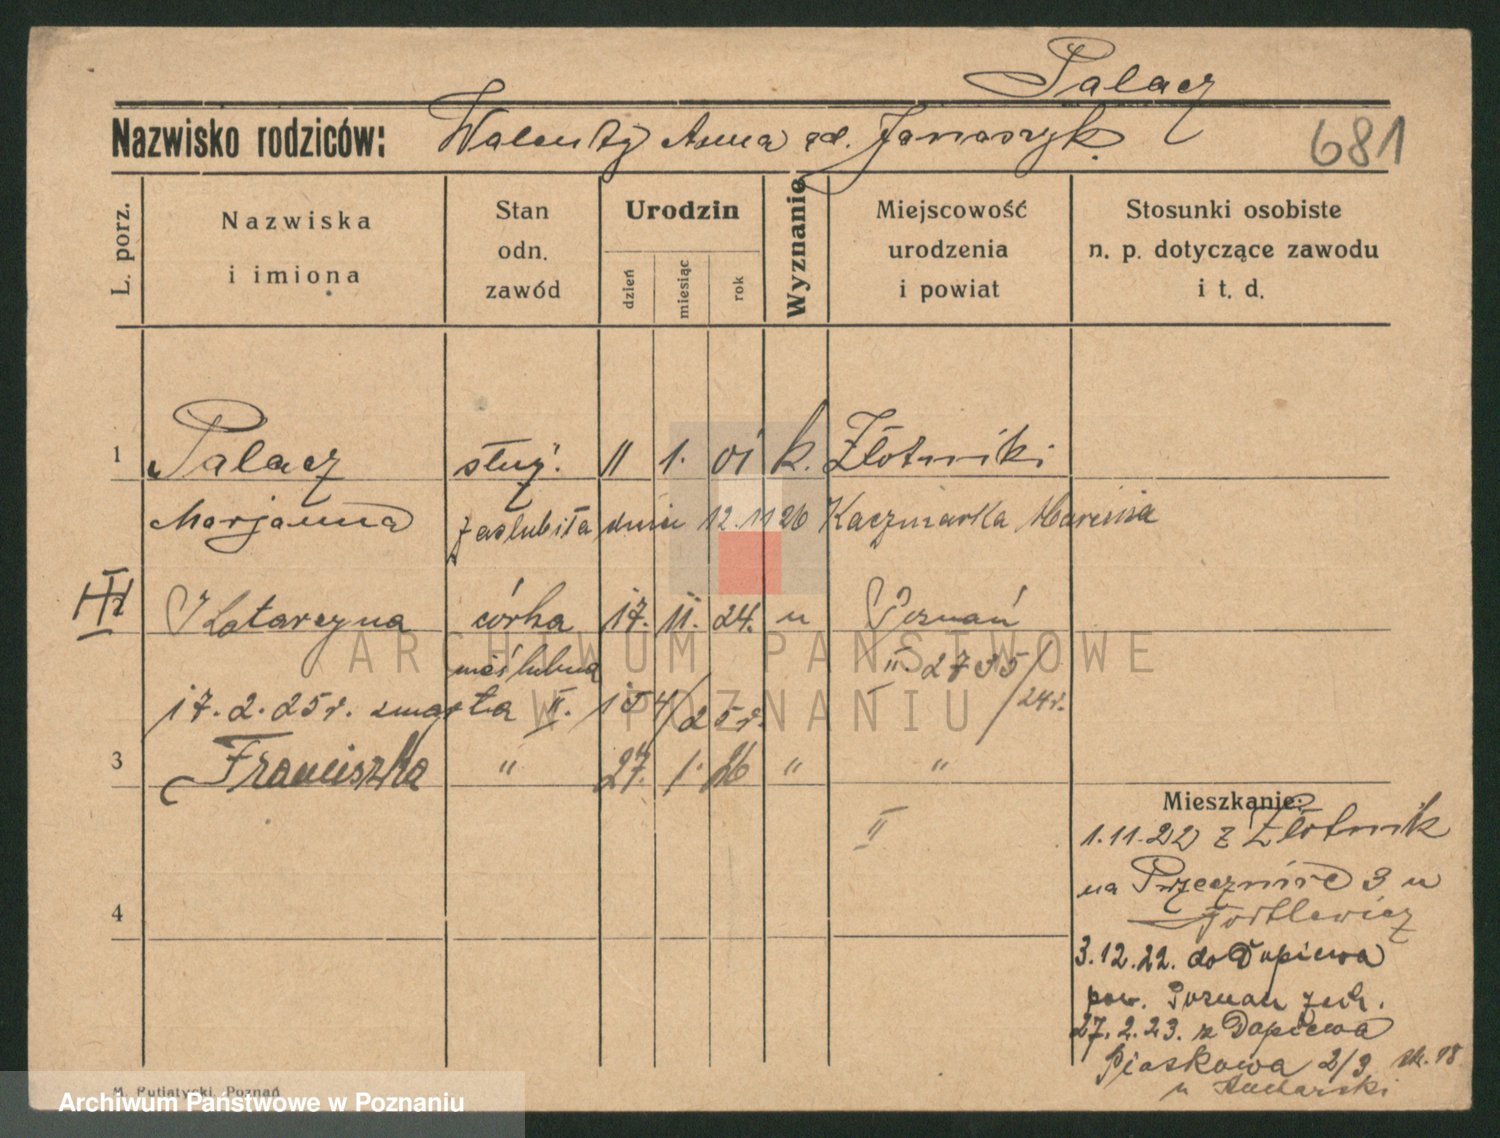 Palacz
Nazwisko rodziców: Walenty Anna zd. Janaszyk.
681
L. porz.
Nazwiska
i imiona
Stan
odn.
zawód
Urodzin
dzień
miesiąc
rok
Wyznanie
Miejscowość
urodzenia
i powiat
Stosunki osobiste
n. p. dotyczące zawodu
i t. d.
1 Palacz służ. 11 1. 01 k. Złotniki
Marjanna zaślubiła dniu 12.11 26 Kaczmarka Marcina
Katarzyna córka 17. 11. 24. " Poznań
nieślubna II 2735/24r.
17.2.25r. zmarła II. 154/25r.
3 Franciszka " 27. 1. 26 " "
II
4
Mieszkanie:
1.11.22 z Złotnik
na Przecznicę 3 u
3.12.22. do Dopiewa
pow. Poznań zach.
27.2.23. z Dopiewa
Piaskowa 2/3
u
M. Putiatycki, Poznań
ARCHIWUM PAŃSTWOWE
W POZNANIU
Archiwum Państwowe w Poznaniu